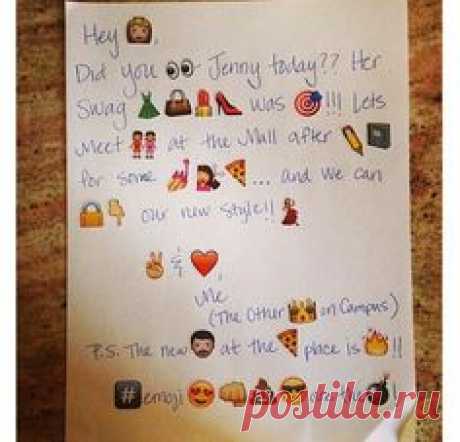 Hey 👸,
Did you 👀 Jenny today?? Her
Swag 👗👜💄👠 was 🎯!!! Lets
Meet 👭 at the Mall after ✏️📓
for some 💅💇🍕... and we can
🔒👇 our new style!!💃
✌️ & ❤️,
Me
(The Other 🙌 on Campus)
P.S. The new 🧔 at the 🍕 place is 🔥!!
#️⃣emoji 😍👊💩😎 💣!
postila.ru